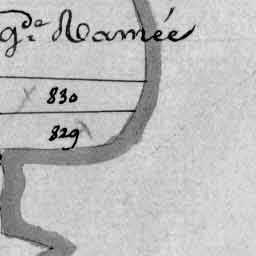 gde Ramée
830
829